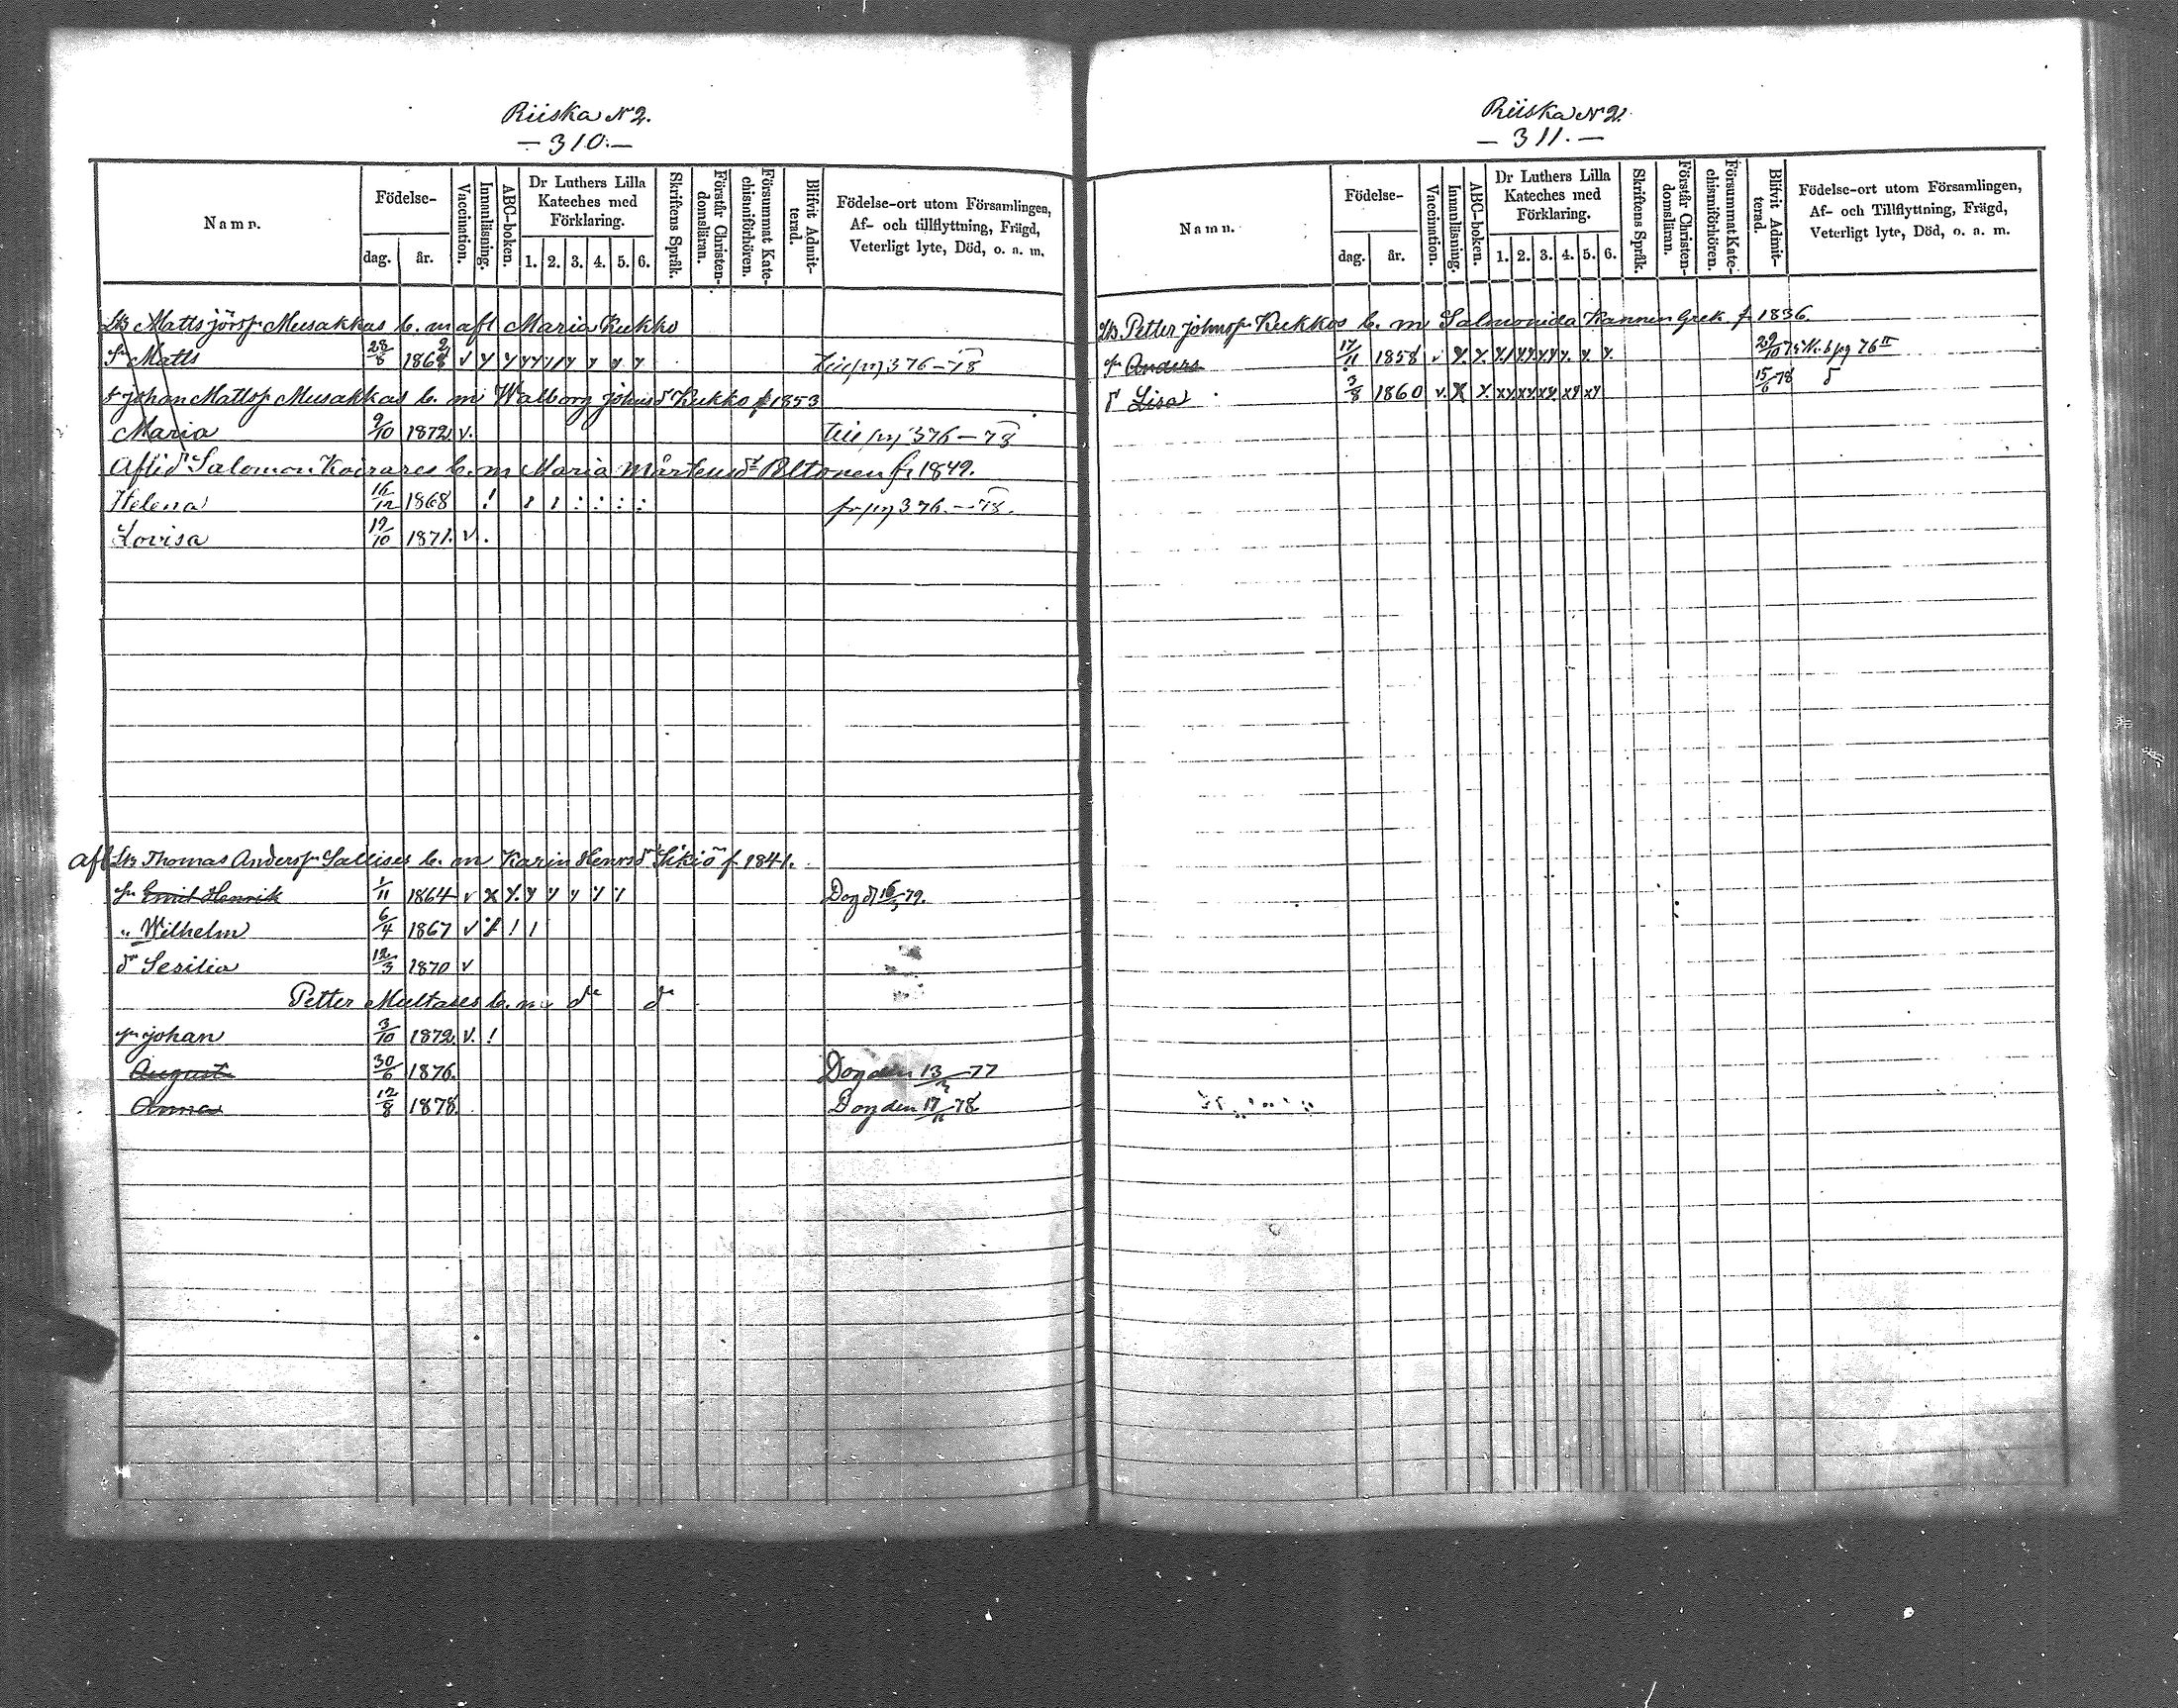 Riiska N 2.
— 310. —
Namn.
Födelse-
dag.
år.
Vaccination.
Innanläsning.
ABC-boken.
Dr Luthers Lilla Kateches med Förklaring.
1. 2. 3. 4. 5. 6.
Skriftens Språk.
Förstår Christendomsläran.
Försummat Katechismiförhören.
Blifvit Admitterad.
Födelse-ort utom Församlingen, Af- och tillflyttning, Frägd, Veterligt lyte, Död, o. a. m.
Matts Musakkas b. m afl Maria Kukko
Matts 28/8 1868 v 376—78
Johan Mattsp Musakkas b. m Walborg Johnsd Kukko f 1853
Maria 9/10 1872 v. 376—78
Aflid Salomon b. m Maria Mårtensd Peltonen f. 1849.
Helena 16/12 1868 ! fr pg 376.—78.
Lovisa 19/10 1871. v.
afl Thomas Andersp b. m Karin Henrsd f. 1841.
Emil Henrik 1/11 1864 v Dog d 79.
" Wilhelm 6/4 1867 v
dr Sesilia 12/3 1870 v
Petter Multases b. m. do do
Johan 3/10 1872 v. !
August 30/6 1876. Dog den 13/ 77
Anna 12/8 1878. Dog den 17/ 78
Riiska N 2.
— 311. —
Namn.
Födelse-
dag.
år.
Vaccination.
Innanläsning.
ABC-boken.
Dr Luthers Lilla Kateches med Förklaring.
1. 2. 3. 4. 5. 6.
Skriftens Språk.
Förstår Christendomsläran.
Försummat Katechismiförhören.
Blifvit Admitterad.
Födelse-ort utom Församlingen, Af- och Tillflyttning, Frägd, Veterligt lyte, Död, o. a. m.
Petter Johnsp Kukkos b. m Salmonida Kannen Grek f 1836.
Anders 17/11 1858 v 29/10 pg 76
d Lisa 3/8 1860 v. 15/6 78